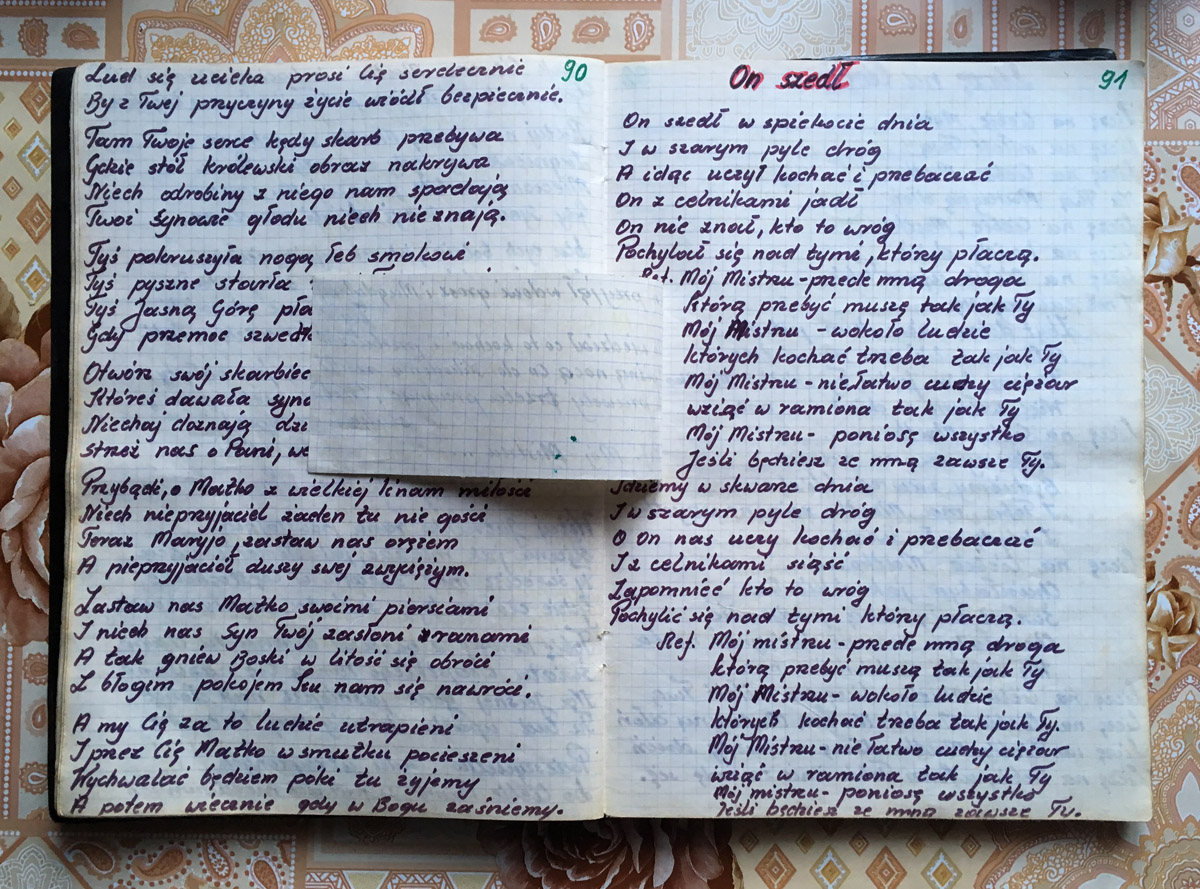 90
Lud się ucieka prosi Cię serdecznie
By z Twej przyczyny życie wiódł bezpiecznie.
Tam Twoje serce kędy skarb przebywa
Gdzie stół królewski obraz nakrywa
Niech odrobiny z niego nam spadają
Twoi Synowie głodu niech nie znają.
Tyś pokruszyła nogą łeb smokowi
Tyś pyszne stawiła
Tyś Jasną Górę
Gdy przemoc
Otwórz swój skarbiec
Któreś dawała
Niechaj doznają
strzeż nas o Pani,
Przybądź, o Matko z wielkiej k'nam miłości
Niech nieprzyjaciel żaden tu nie gości
Teraz Maryjo, zastaw nas orężem
A nieprzyjaciół duszy swej zwyciężym.
Zastaw nas Matko swoimi piersiami
I niech nas Syn Twój zasłoni ranami
A tak gniew Boski w litość się obróci
Z błogim pokojem ku nam się nawróci.
A my Cię za to ludzie utrapieni
I przez Cię Matko w smutku pocieszeni
Wychwalać będziem póki tu żyjemy
A potem wiecznie gdy w Bogu zaśniemy.
On szedł 91
On szedł w spiekocie dnia
I w szarym pyle dróg
A idąc uczył kochać i przebaczać
On z celnikami jadł
On nie znał, kto to wróg
Pochylał się nad tymi, który płaczą.
Ref. Mój Mistrzu - przede mną droga
którą przebyć muszę tak jak Ty
Mój Mistrzu - wokoło ludzie
których kochać trzeba tak jak Ty
Mój Mistrzu - niełatwo cudzy ciężar
wziąć w ramiona tak jak Ty
Mój Mistrzu - poniosę wszystko
Jeśli będziesz ze mną zawsze Ty.
Idziemy w skwarze dnia
I w szarym pyle dróg
O On nas uczy kochać i przebaczać
I z celnikami siąść
Zapomnieć kto to wróg
Pochylić się nad tymi który płaczą.
Ref. Mój mistrzu - przede mną droga
którą przebyć muszą tak jak Ty
Mój Mistrzu - wokoło ludzie
których kochać trzeba tak jak Ty.
Mój Mistrzu - nie łatwo cudzy ciężar
wziąć w ramiona tak jak Ty
Mój mistrzu - poniosę wszystko
Jeśli będziesz ze mną zawsze Ty.